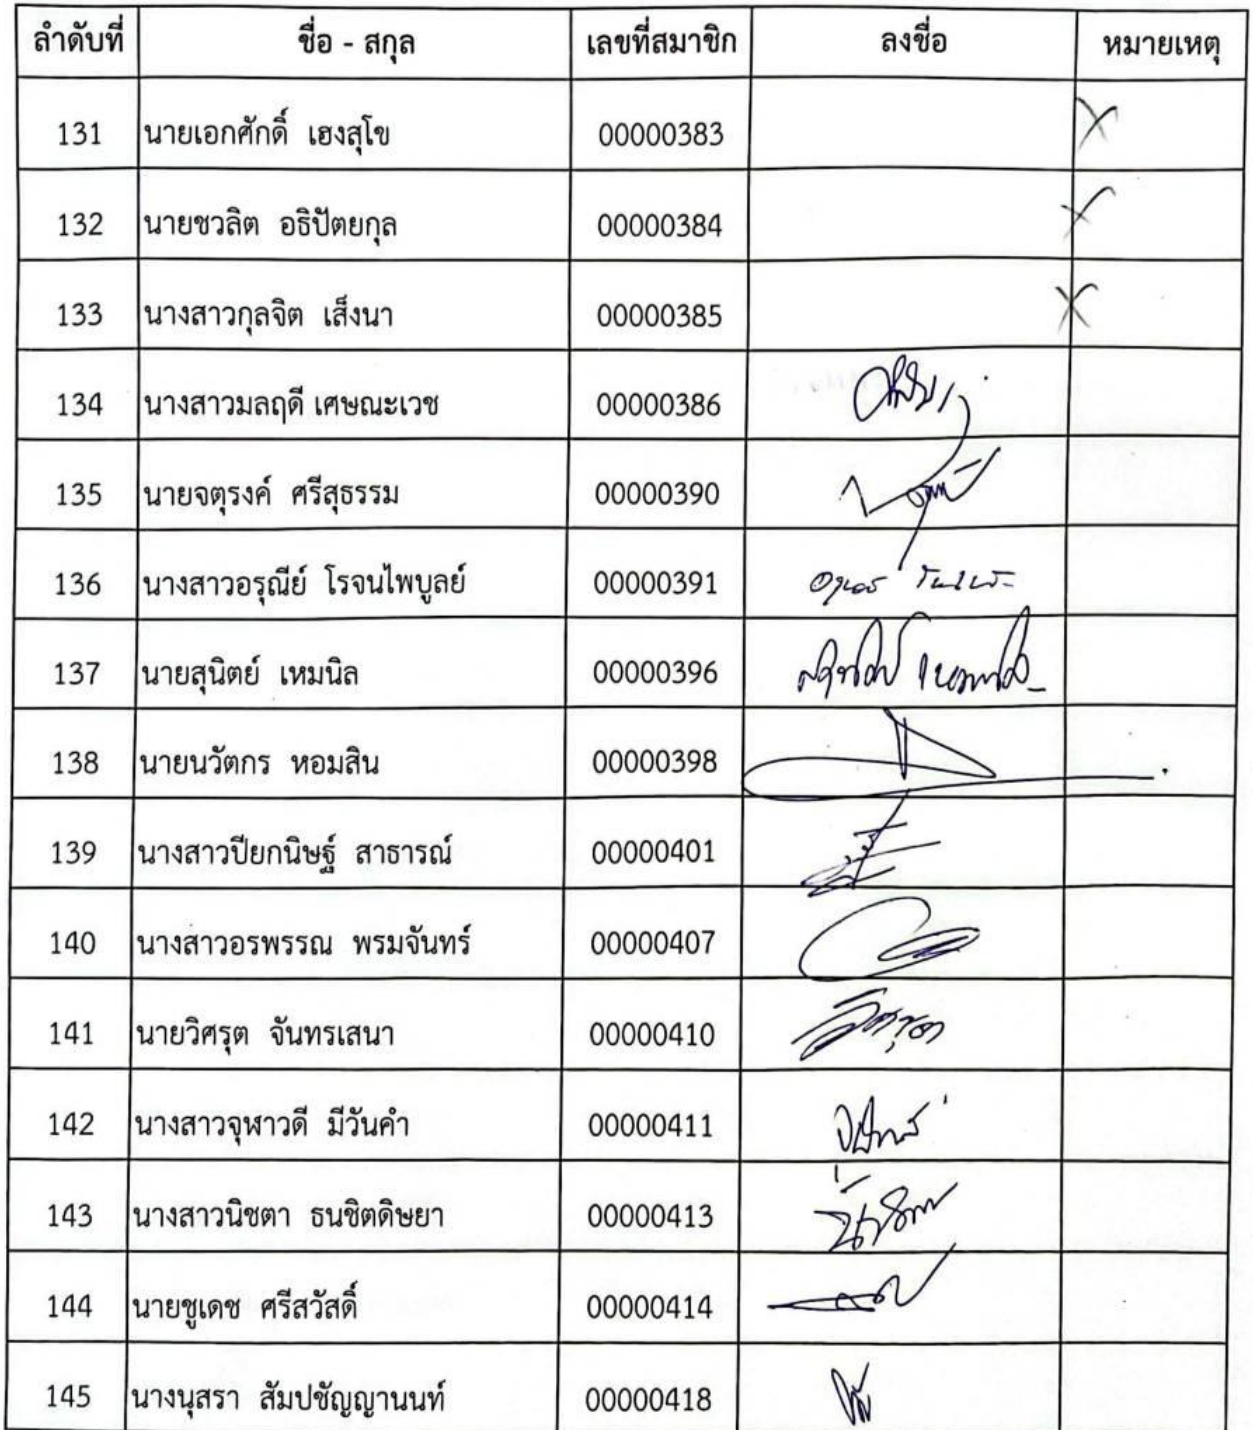 ลำดับที่ ชื่อ - สกุล เลขที่สมาชิก ลงชื่อ หมายเหตุ
131 นายเอกศักดิ์ เฮงสุโข 00000383
132 นายชวลิต อธิปัตยกุล 00000384
133 นางสาวกุลจิต เส็งนา 00000385
134 นางสาวมลฤดี เศษณะเวช 00000386
135 นายจตุรงค์ ศรีสุธรรม 00000390
136 นางสาวอรุณีย์ โรจนไพบูลย์ 00000391
137 นายสุนิตย์ เหมนิล 00000396
138 นายนวัตกร หอมสิน 00000398
139 นางสาวปิยกนิษฐ์ สาธารณ์ 00000401
140 นางสาวอรพรรณ พรมจันทร์ 00000407
141 นายวิศรุต จันทรเสนา 00000410
142 นางสาวจุฬาวดี มีวันคำ 00000411
143 นางสาวนิชตา ธนชิตดิษยา 00000413
144 นายชูเดช ศรีสวัสดิ์ 00000414
145 นางนุสรา สัมปชัญญานนท์ 00000418